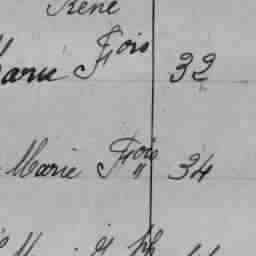 René
Marie Fois 32
Marie Fois 34